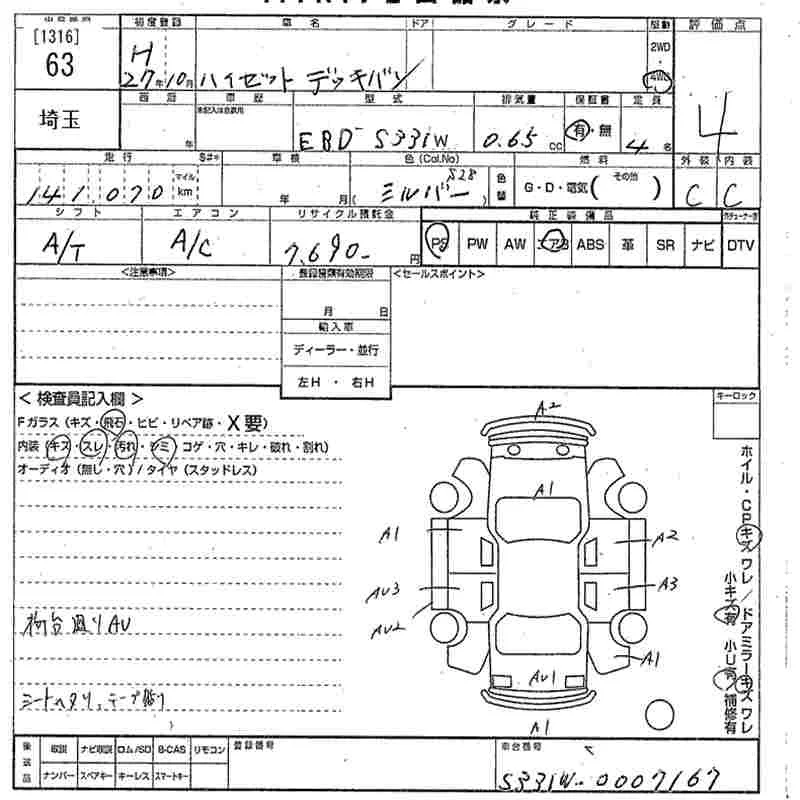 [1316]
63
埼玉
初度登録
車名
ドア
グレード
駆動
評価点
H
27年10月
ハイゼット デッキバン
2WD
・
4WD
4
車歴
型式
排気量
保証書
定員
EBD-S331W
0.65cc
有・無
4名
年
走行
車検
色(Col.No)
燃料
外装
内装
141,070
マイル
km
年 月
シルバー S28
色替
G・D・電気( その他 )
C
C
シフト
エアコン
リサイクル預託金
純正装備品
A/T
A/C
7,690-円
PS
PW
AW
エアB
ABS
革
SR
ナビ
DTV
<注意事項>
<セールスポイント>
月 日
輸入車
ディーラー・並行
左H ・ 右H
< 検査員記入欄 >
Fガラス (キズ・飛石・ヒビ・リペア跡・X要)
内装 (キズ・スレ・汚れ・シミ・コゲ・穴・キレ・破れ・割れ)
オーディオ (無し・穴) / タイヤ (スタッドレス)
荷台廻りAU
シートヘタリ、テープ貼り
キーロック
A2
A1
A1
A2
AU3
A3
AU2
A1
AU1
A1
ホイル・CPキズ ワレ / ドアミラーキズ ワレ
小キズ有 小U有 / 補修有
後送品
取説
ナビ取説
ロム/SD
B-CAS
リモコン
ナンバー
スペアキー
キーレス
スマートキー
登録番号
車台番号
S331W-0007167